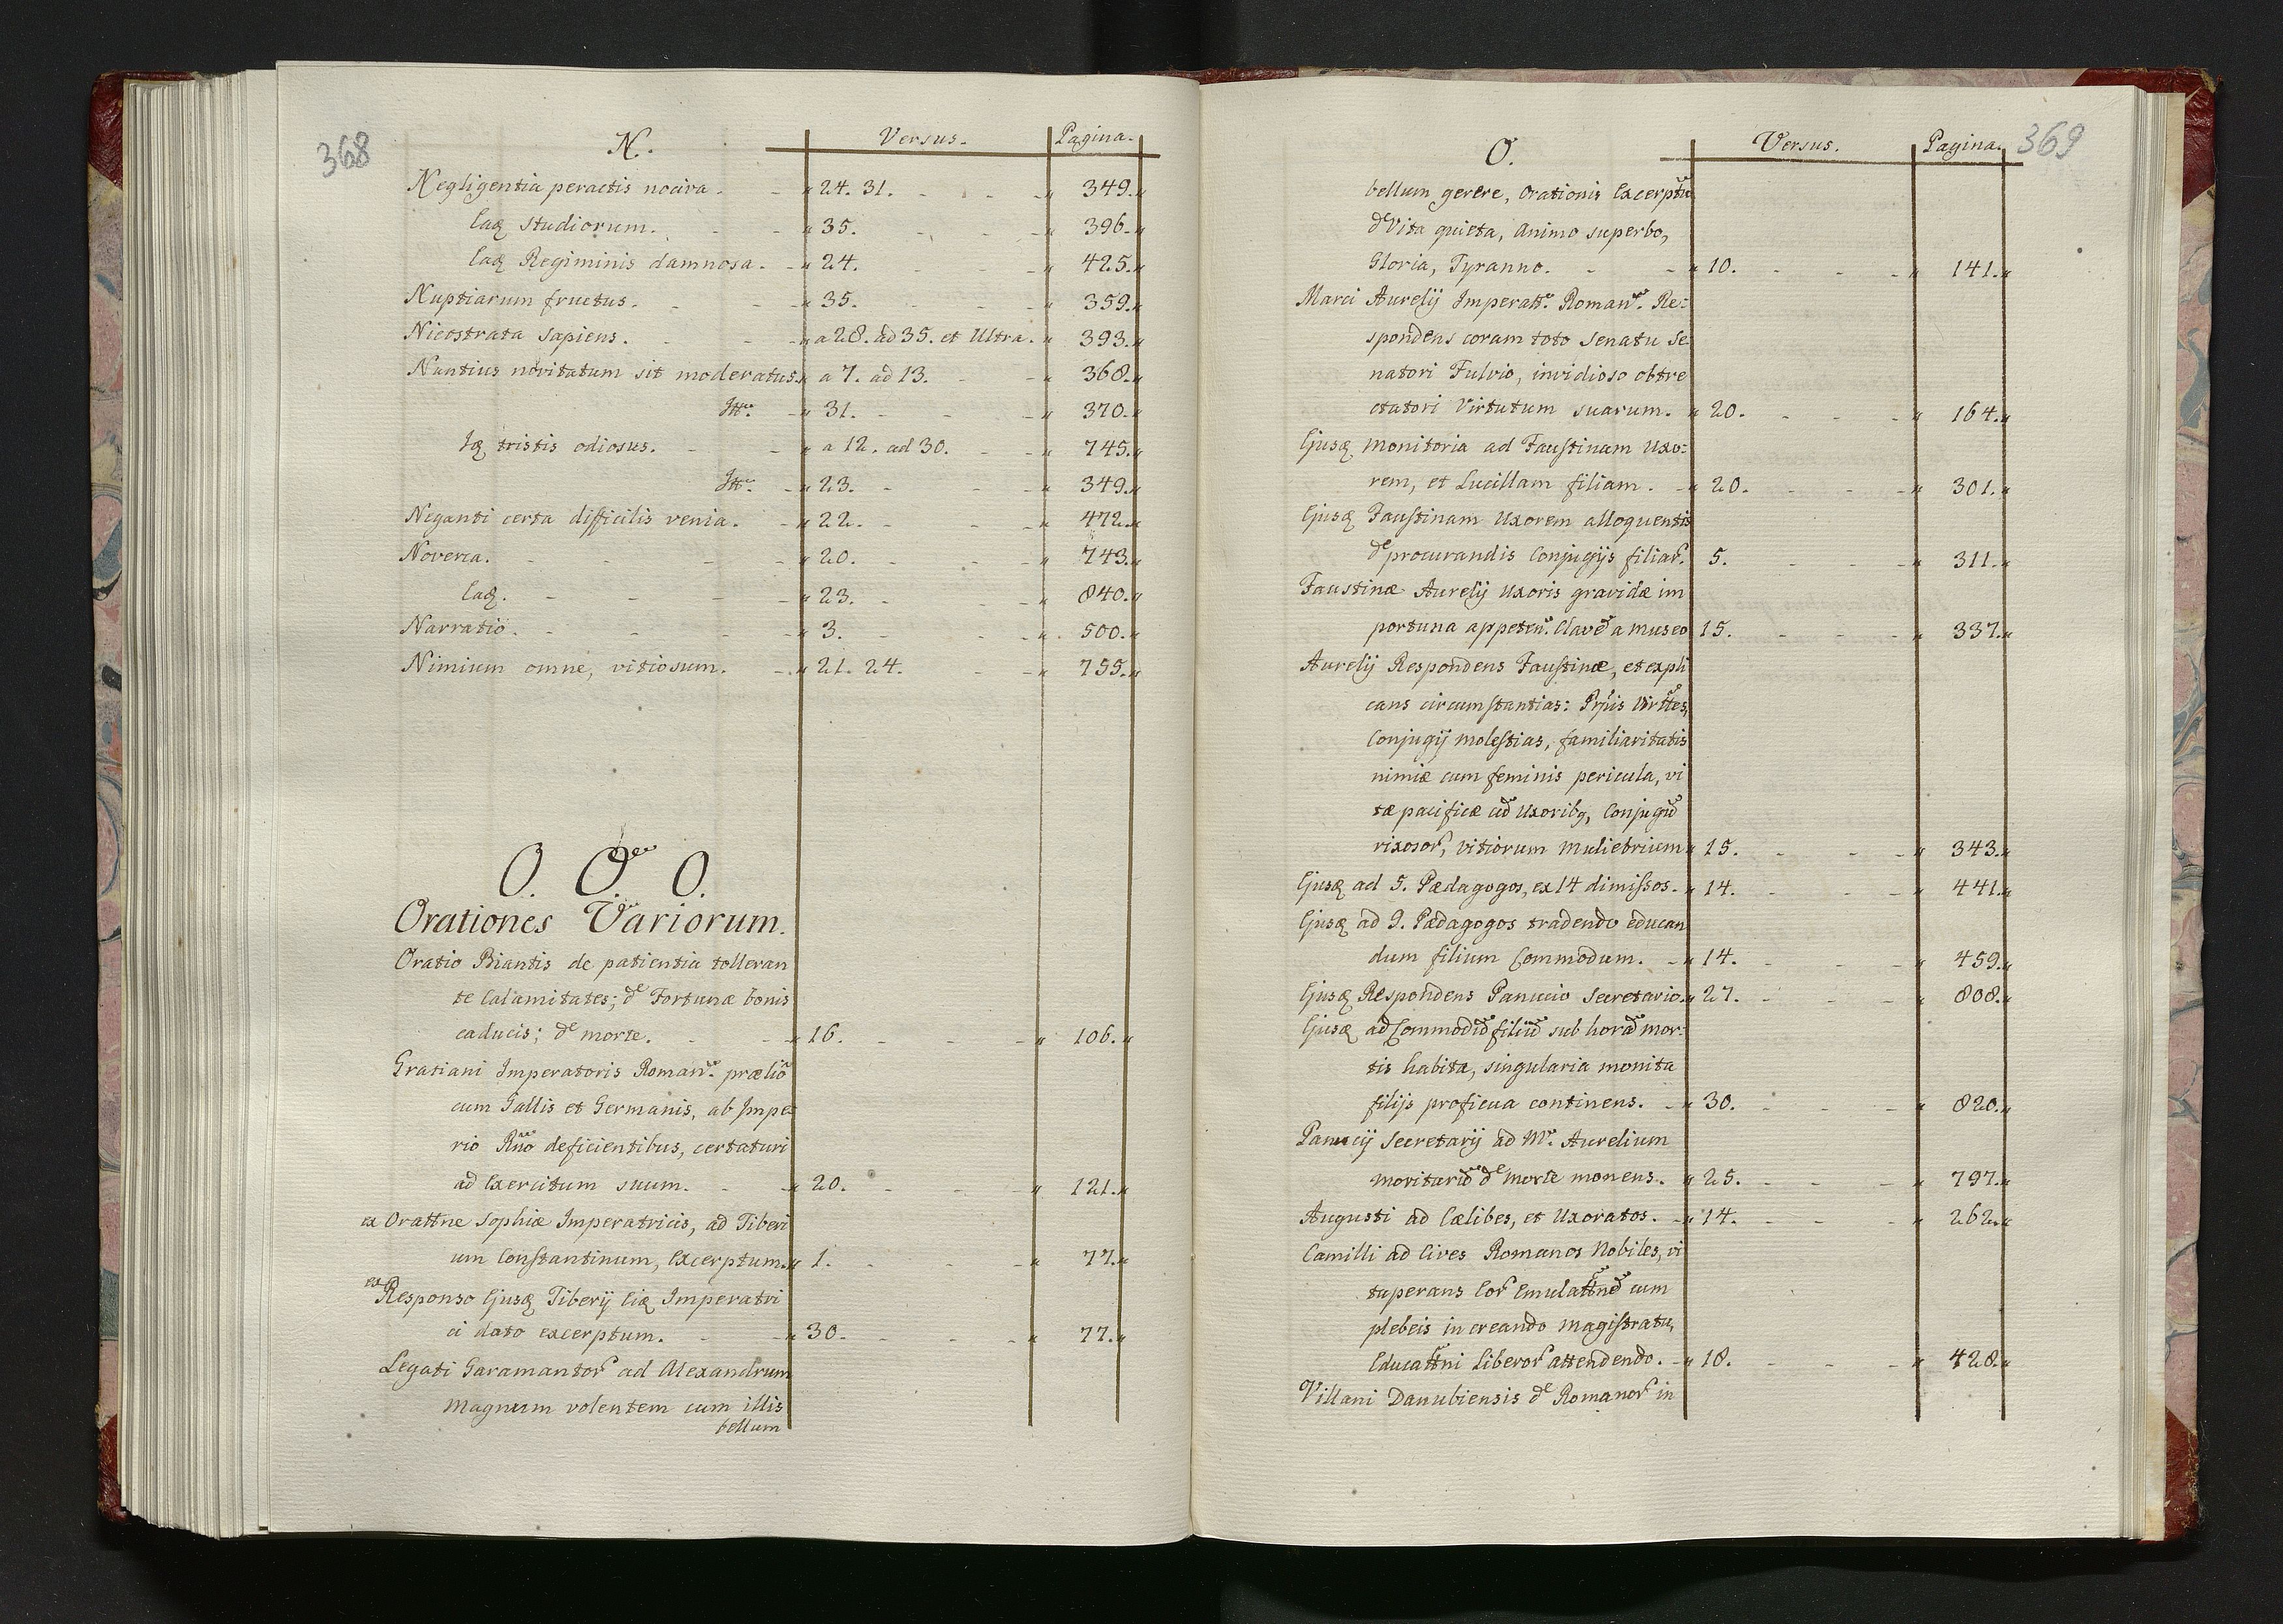 368
N. Versus. Pagina.
Negligentia peractis nociva. 24. 31. 349.
Eaq studiorum. 35. 396.
Eaq Regiminis damnosa. 24. 425.
Nuptiarum fructus. 35. 359.
Nicostrata sapiens. a 28. ad 35. et Ultra. 393.
Nuntius novitatum sit moderatus. a 7. ad 13. 368.
Itt. 31. 370.
Iq tristis odiosus. a 12. ad 30. 745.
Itt. 23. 349.
Neganti certa difficilis venia. 22. 472.
Noverca. 20. 743.
Eaq. 23. 840.
Narratio. 3. 500.
Nimium omne, vitiosum. 21. 24. 755.
O. O. O.
Orationes Variorum.
Oratio Biantis de patientia tolleran
te Calamitates; de Fortunæ bonis
caducis; de morte. 16. 106.
Gratiani Imperatoris Roman. prælio
cum Gallis et Germanis, ab Impe-
rio Rno deficientibus, certaturi
ad Exercitum suum. 20. 121.
ex Orattne Sophiæ Imperatricis, ad Tiberi
um Constantinum, Excerptum. 1. 77.
ex Responso Ejusq Tiberij Eiq Imperatri
ci dato excerptum. 30. 77.
Legati Garamantor ad Alexandrum
Magnum volentem cum illis
bellum
369
O. Versus. Pagina.
bellum gerere, Orationis Excerptu
de Vita quieta, Animo superbo,
Gloria, Tyranno. 10. 141.
Marci Aurelij Imperatt. Roman. Re:
spondens coram toto Senatu Se
natori Fulvio, invidioso obtre
ctatori Virtutum suarum. 20. 164.
Ejusq monitoria ad Faustinam Uxo:
rem, et Lucillam filiam. 20. 301.
Ejusq Faustinam Uxorem alloquentis
de procurandis Conjugijs filiar. 5. 311.
Faustinæ Aurelij Uxoris gravidæ im
portuna appeten. Clave a Museo 15. 337.
Aurelij Respondens Faustinæ, et expli
cans circumstantias: Prjis Virttes,
Conjugij molestias, familiaritatis
nimiæ cum feminis pericula, vi
tæ pacificæ cu Uxoribq, Conjugu
rixosor, vitiorum muliebrium 15. 343.
Ejusq ad 5. Pædagogos, ex 14 dimissos. 14. 441.
Ejusq ad 9. Pædagogos tradendo educan
dum filium Commodum. 14. 459.
Ejusq Respondens Panucio Secretario. 27. 808.
Ejusq ad Commodu filiu sub hora mor:
tis habita, singularia monita
filijs proficua continens. 30. 820.
Panucij Secretarij ad M. Aurelium
moritaru de morte monens. 25. 797.
Augusti ad Cælibes, et Uxoratos. 14. 262.
Camilli ad Cives Romanos Nobiles, vi
tuperans Eor Emulattne cum
plebeis in creando magistratu,
Educattni Liberor attendendo. 18. 428.
Villani Danubiensis de Romanor in